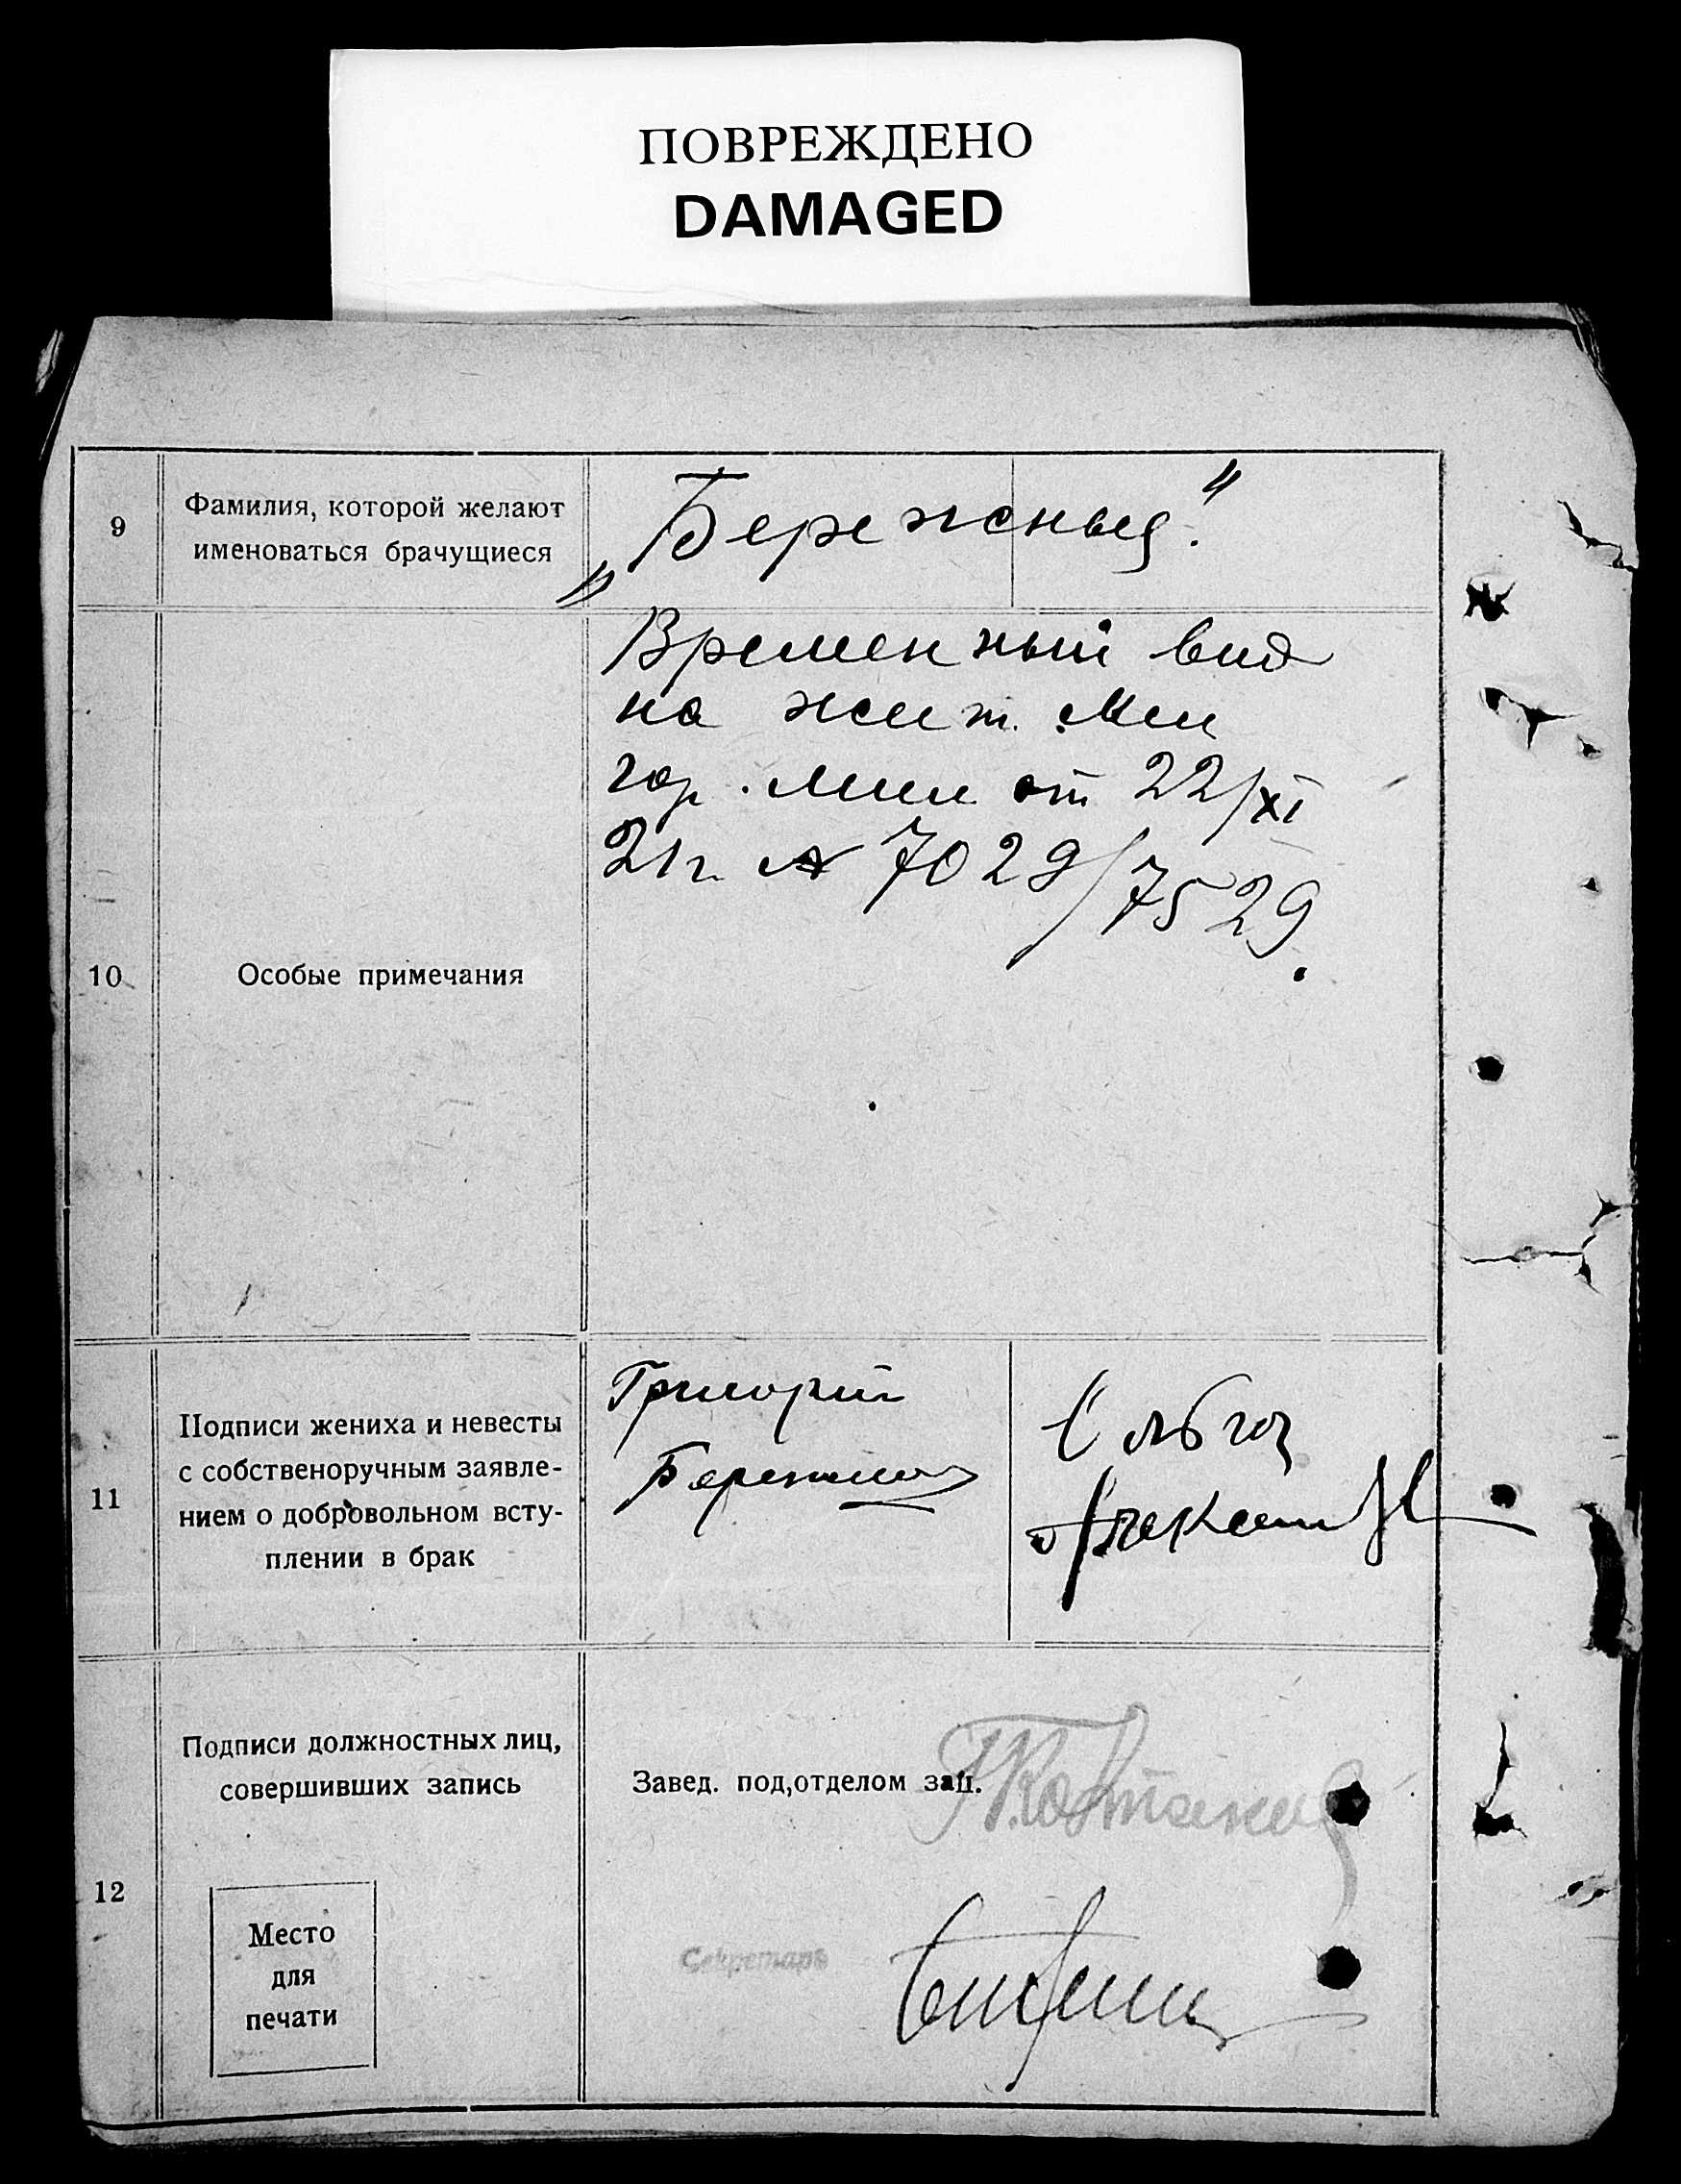 ПОВРЕЖДЕНО
DAMAGED
9
Фамилия, которой желают
именоваться брачущиеся
„Бережныя."
10
Особые примечания
Временный вид
на жит. Мил
гор. Мили от 22/XI
21г. № 7029/7529.
11
Подписи жениха и невесты
с собственоручным заявле-
нием о добровольном всту-
плении в брак
Григорий
Ольга
12
Подписи должностных лиц,
совершивших запись
Завед. под,отделом зап.
Секретарь
Место
для
печати